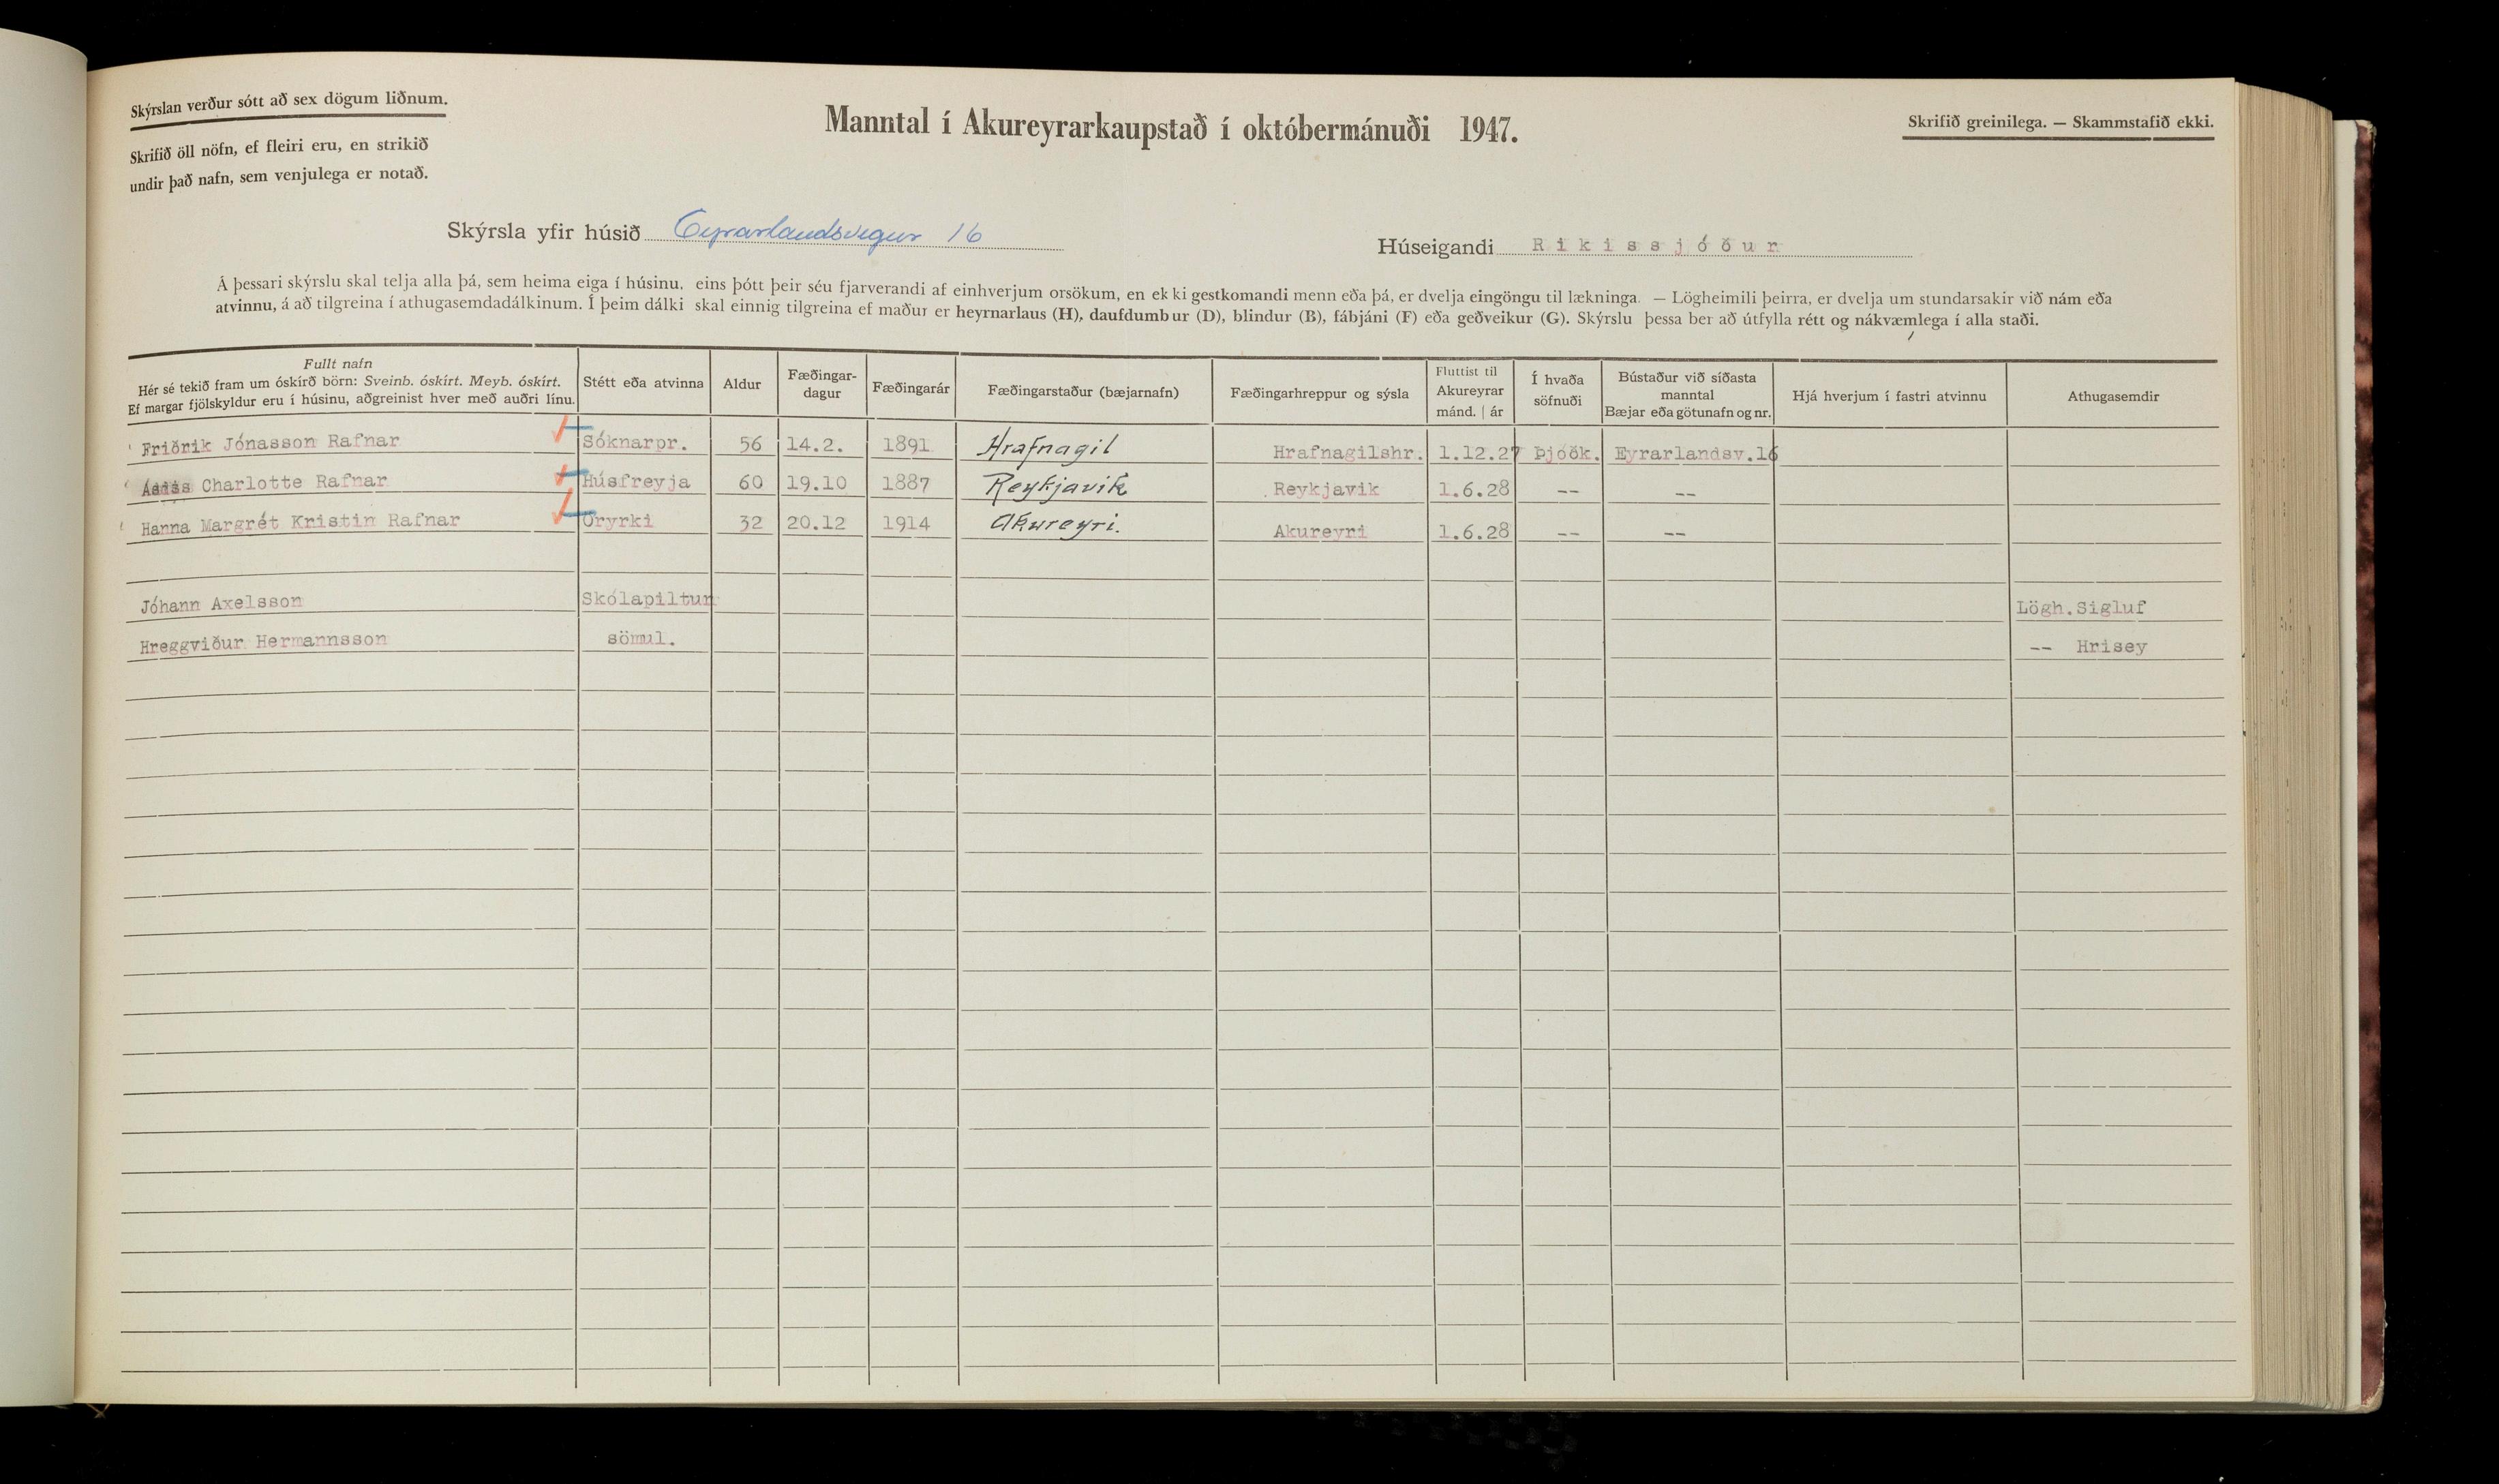 Skýrslan verður sótt að sex dögum liðnum.
Skrifið öll nöfn, ef fleiri eru, en strikið
undir það nafn, sem venjulega er notað.
Manntal í Akureyrarkaupstað í októbermánuði 1947.
Skrifið greinilega. — Skammstafið ekki.
Skýrsla yfir húsið Eyrarlandsvegur 16
Húseigandi Rikissjóður
Á þessari skýrslu skal telja alla þá, sem heima eiga í húsinu, eins þótt þeir séu fjarverandi af einhverjum orsökum, en ekki gestkomandi menn eða þá, er dvelja eingöngu til lækninga. — Lögheimili þeirra, er dvelja um stundarsakir við nám eða
atvinnu, á að tilgreina í athugasemdadálkinum. Í þeim dálki skal einnig tilgreina ef maður er heyrnarlaus (H), daufdumbur (D), blindur (B), fábjáni (F) eða geðveikur (G). Skýrslu þessa ber að útfylla rétt og nákvæmlega í alla staði.
Fullt nafn
Hér sé tekið fram um óskírð börn: Sveinb. óskírt. Meyb. óskírt.
Ef margar fjölskyldur eru í húsinu, aðgreinist hver með auðri línu.
Stétt eða atvinna
Aldur
Fæðingar-
dagur
Fæðingarár
Fæðingarstaður (bæjarnafn)
Fæðingarhreppur og sýsla
Fluttist til
Akureyrar
mánd. | ár
Í hvaða
söfnuði
Bústaður við síðasta
manntal
Bæjar eða götunafn og nr.
Hjá hverjum í fastri atvinnu
Athugasemdir
Friðrik Jónasson Rafnar Sóknarpr. 56 14.2. 1891 Hrafnagil Hrafnagilshr. 1.12.27 Þjóðk. Eyrarlandsv.16
Charlotte Rafnar Húsfreyja 60 19.10 1887 Reykjavik Reykjavik 1.6.28 -- --
Hanna Margrét Kristin Rafnar Öryrki 32 20.12 1914 Akureyri. Akureyri 1.6.28 -- --
Jóhann Axelsson Skólapiltur Lögh.Sigluf
Hreggviður Hermannsson sömul. -- Hrisey